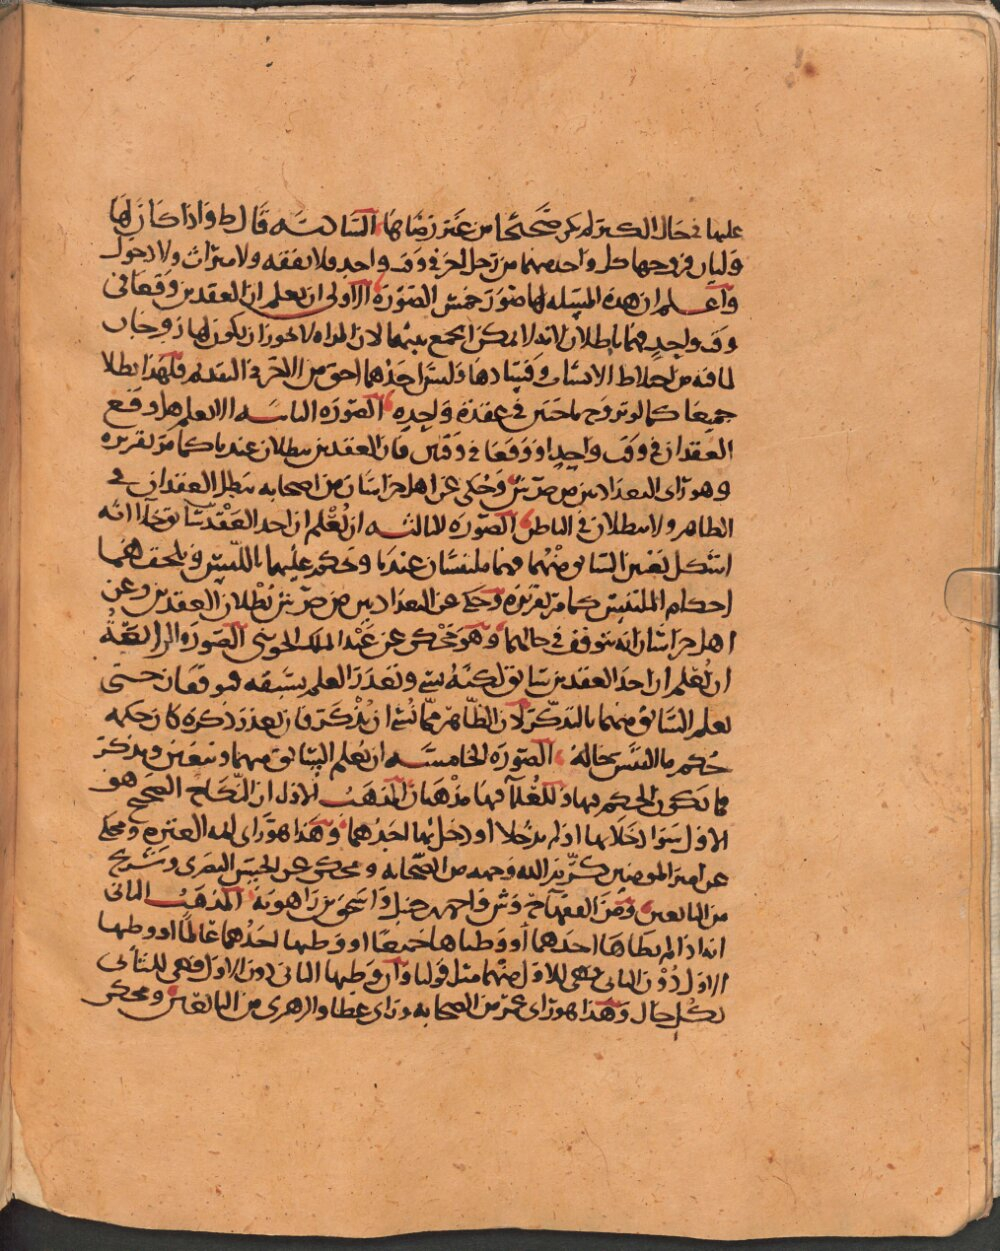 عليها في حال الكبر لم يكن صحيحا من غير رضاها، الثالثة قال ط واذا كان لها
وليان فزوجها كل واحد منهما من رجل اخر في وقت واحد فلا نفقه ولا ميراث ولا دخول
واعلم ان هذه المسئله لها صور خمس الصورة الاولى ان يعلم ان العقدين وقعا في
وقت واحد فهما باطلان لانه لا يمكن الجمع بينهما لان المراه لا يجوز ان يكون لها زوجان
لما فيه من اختلاط الانساب وفسادها وليس احدهما احق من الاخر في التقديم فلهذا بطلا
جميعا كما لو تزوج باختين في عقدة واحدة، الصورة الثانيه الا نعلم هل وقع
العقدان في وقت واحد او وقعا في وقتين فان العقدين يبطلان عندنا كما مر تقريره
وهو راي البغدادين من ص ش، وحكي عن اهل خراسان من اصحابه يبطل العقدان في
الظاهر ولا يبطلان في الباطن، الصورة الثالثه ان نعلم ان احد العقدين سابق خلا انه
اشكل تعين السابق منهما فهما ملتبسان عندنا وحكم عليهما باللبس ويلحقهما
احكام الملتبس كما مر تقريره وحكي عن البغدادين من ص ش بطلان العقدين وعن
اهل خراسان انه يتوقف في حالهما، وهو محكي عن عبد الملك الجويني الصورة الرابعة
ان نعلم ان احد العقدين سابق لكنه نسي وتعذر العلم بسبقه فيوقفان حتى
يعلم السابق منهما بالتذكر لان الظاهر مما نسي ان يذكر فان تعذر ذكره كان حكمه
حكم ما التبس بحاله، الصورة الخامسه ان يعلم السابق منهما ويتعين ويذكر
فما يكون الحكم فيها وللعلماء فيها مذهبان المذهب الاول ان النكاح الصحيح هو
الاول سوا دخلا بها او لم يدخلا او دخل بها احدهما، وهذا هو راي ائمه العتره ومحكي
عن امير المومنين كرم الله وجهه من الصحابه ومحكي عن الحسن البصري وشريح
من التابعين، ومن الفقهآء ح وش واحمد بن حنبل واسحق بن راهويه، المذهب الثاني
انه اذا لم يطاها احدهما او وطياها جميعا او وطيها احدهما عالما او وطيها
الاول دون الثاني فهي للاول منهما مثل قولنا وان وطيها الثاني دون الاول فهي للثاني
بكل حال وهذا هو راي عمر من الصحابه وراي عطا والزهري من التابعين، ومحكي